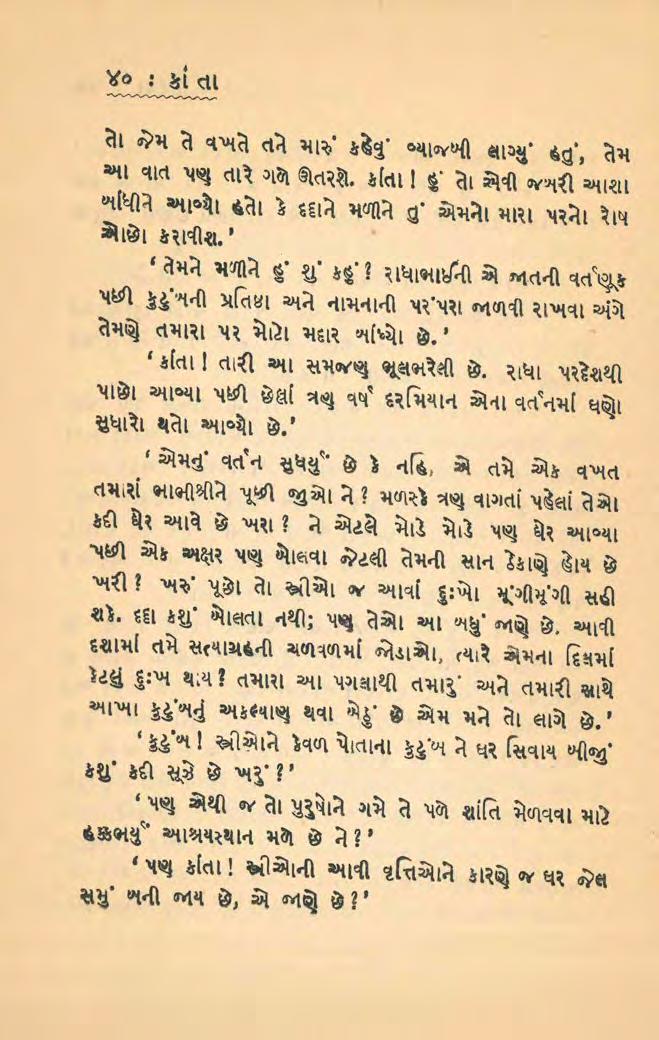 ૪૦ : કાંતા
તો જેમ તે વખતે તને મારું કહેવું વ્યાજબી લાગ્યું હતું, તેમ
આ વાત પણ તારે ગળે ઊતરશે. કાંતા ! હું તો એવી જબરી આશા
બાંધીને આવ્યો હતો કે દદ્દાને મળીને તું એમનો મારા પરનો રોષ
ઓછો કરાવીશ.'
‘તેમને મળીને હું શું કહું ? રાધાભાઈની એ જાતની વર્તણૂક
પછી કુટુંબની પ્રતિષ્ઠા અને નામનાની પરંપરા જાળવી રાખવા અંગે
તેમણે તમારા પર મોટો મદાર બાંધ્યો છે.'
‘કાંતા ! તારી આ સમજણ ભૂલભરેલી છે. રાધા પરદેશથી
પાછો આવ્યા પછી છેલ્લાં ત્રણ વર્ષ દરમિયાન એના વર્તનમાં ઘણો
સુધારો થતો આવ્યો છે.'
‘એમનું વર્તન સુધર્યું છે કે નહિ, એ તમે એક વખત
તમારાં ભાભીશ્રીને પૂછી જુઓ ને ? મળસ્કે ત્રણ વાગતાં પહેલાં તેઓ
કદી ઘેર આવે છે ખરા ? ને એટલે મોડે મોડે પણ ઘેર આવ્યા
પછી એક અક્ષર પણ બોલવા જેટલી તેમની સાન ઠેકાણે હોય છે
ખરી ? ખરું પૂછો તો સ્ત્રીઓ જ આવાં દુઃખો મૂંગીમૂંગી સહી
શકે. દદ્દા કશું બોલતા નથી; પણ તેઓ આ બધું જાણે છે. આવી
દશામાં તમે સત્યાગ્રહની ચળવળમાં જોડાઓ, ત્યારે એમના દિલમાં
કેટલું દુઃખ થાય ? તમારા આ પગલાથી તમારું અને તમારી સાથે
આખા કુટુંબનું અકલ્યાણ થવા બેઠું છે એમ મને તો લાગે છે.'
‘કુટુંબ ! સ્ત્રીઓને કેવળ પોતાના કુટુંબ ને ઘર સિવાય બીજું
કશું કદી સૂઝે છે ખરું ?'
‘પણ એથી જ તો પુરુષોને ગમે તે પળે શાંતિ મેળવવા માટે
હક્કભર્યું આશ્રયસ્થાન મળે છે ને ?'
‘પણ કાંતા ! સ્ત્રીઓની આવી વૃત્તિઓને કારણે જ ઘર જેલ
સમું બની જાય છે, એ જાણે છે ?'